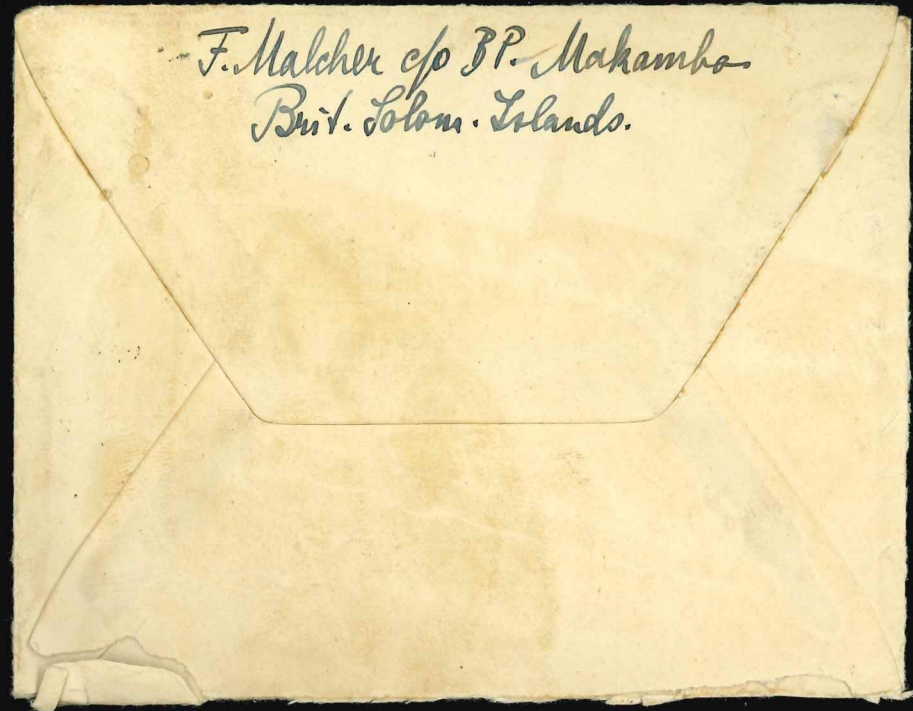 F. Malcher c/o BP. Makambo
Brit. Solom. Islands.